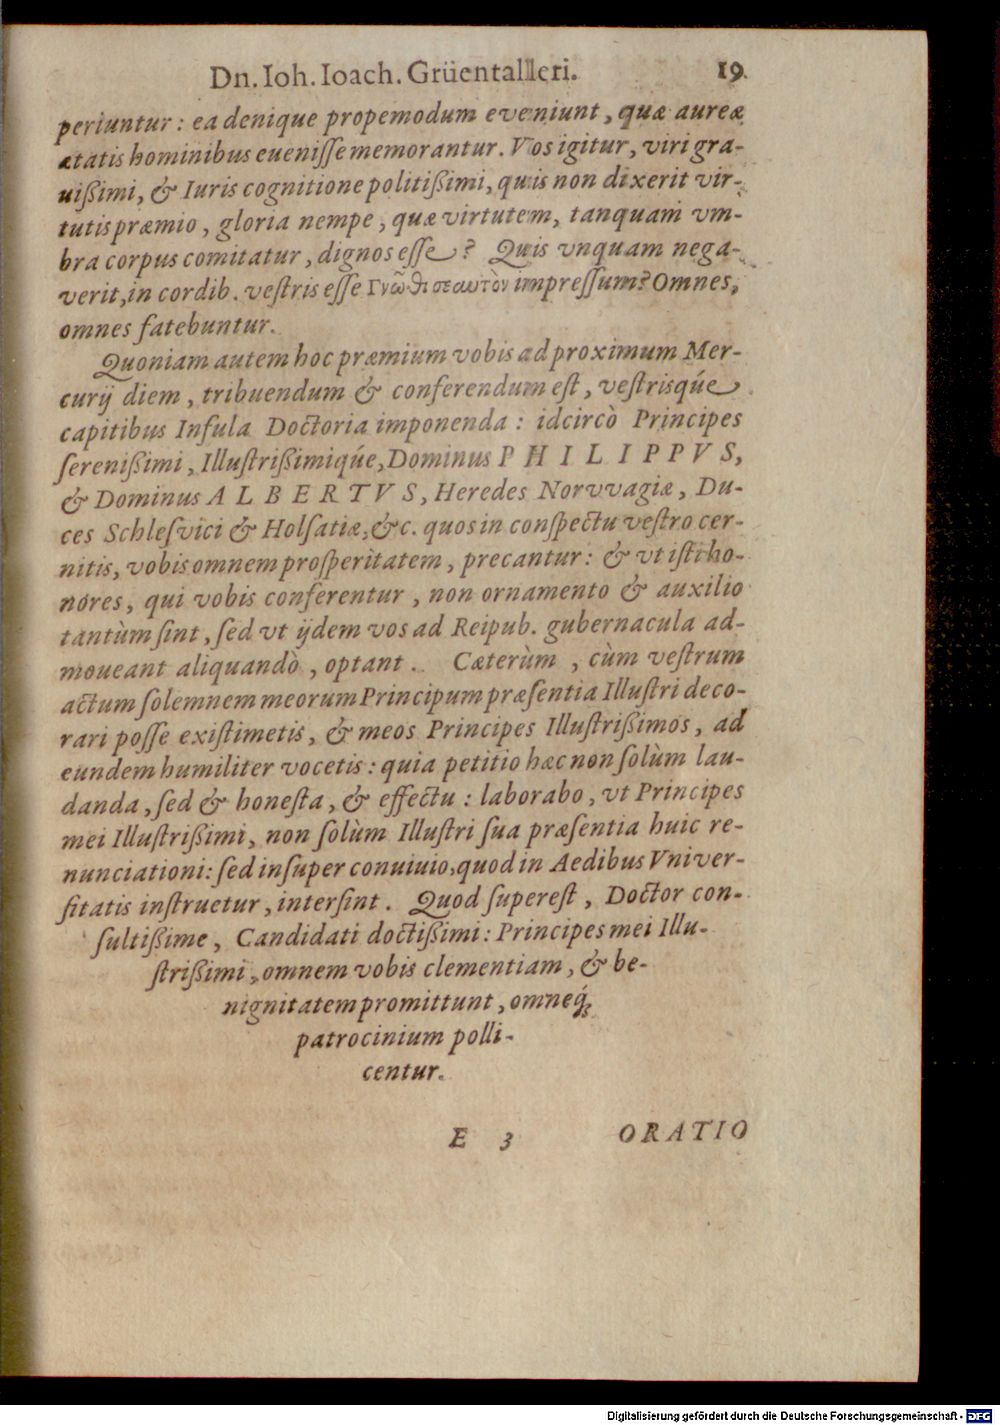 Dn. Ioh. Ioach. Grüentalleri. 19.
periuntur: ea denique propemodum eveniunt, quæ aureæ
ætatis hominibus eueniſſe memorantur. Vos igitur, viri gra-
uißimi, & Iuris cognitione politißimi, quis non dixerit vir-
tutis præmio, gloria nempe, quæ virtutem, tanquam vm-
bra corpus comitatur, dignos eſſe? Quis vnquam nega-
verit, in cordib. veſtris eſſe Γνῶθι σεαυτὸν impreſſum? Omnes,
omnes fatebuntur.
Quoniam autem hoc præmium vobis ad proximum Mer-
curij diem, tribuendum & conferendum eſt, veſtrisq́ue
capitibus Infula Doctoria imponenda: idcircò Principes
ſerenißimi, Illuſtrißimiq́ue, Dominus PHILIPPVS,
& Dominus ALBERTVS, Heredes Norvvagiæ, Du-
ces Schleſvici & Holſatiæ, &c. quos in conſpectu veſtro cer-
nitis, vobis omnem proſperitatem, precantur: & vt iſti ho-
nores, qui vobis conferentur, non ornamento & auxilio
tantùm ſint, ſed vt ijdem vos ad Reipub. gubernacula ad-
moueant aliquandò, optant. Cæterùm, cùm veſtrum
actum ſolemnem meorum Principum præſentia Illuſtri deco-
rari poſſe exiſtimetis, & meos Principes Illuſtrißimos, ad
eundem humiliter vocetis: quia petitio hæc non ſolùm lau-
danda, ſed & honeſta, & effectu: laborabo, vt Principes
mei Illuſtrißimi, non ſolùm Illuſtri ſua præſentia huic re-
nunciationi: ſed inſuper conuiuio, quod in Aedibus Vniver-
ſitatis inſtruetur, interſint. Quod ſupereſt, Doctor con-
ſultißime, Candidati doctißimi: Principes mei Illu-
ſtrißimi, omnem vobis clementiam, & be-
nignitatem promittunt, omneq́;
patrocinium polli-
centur.
E 3 ORATIO
Digitalisierung gefördert durch die Deutsche Forschungsgemeinschaft - DFG